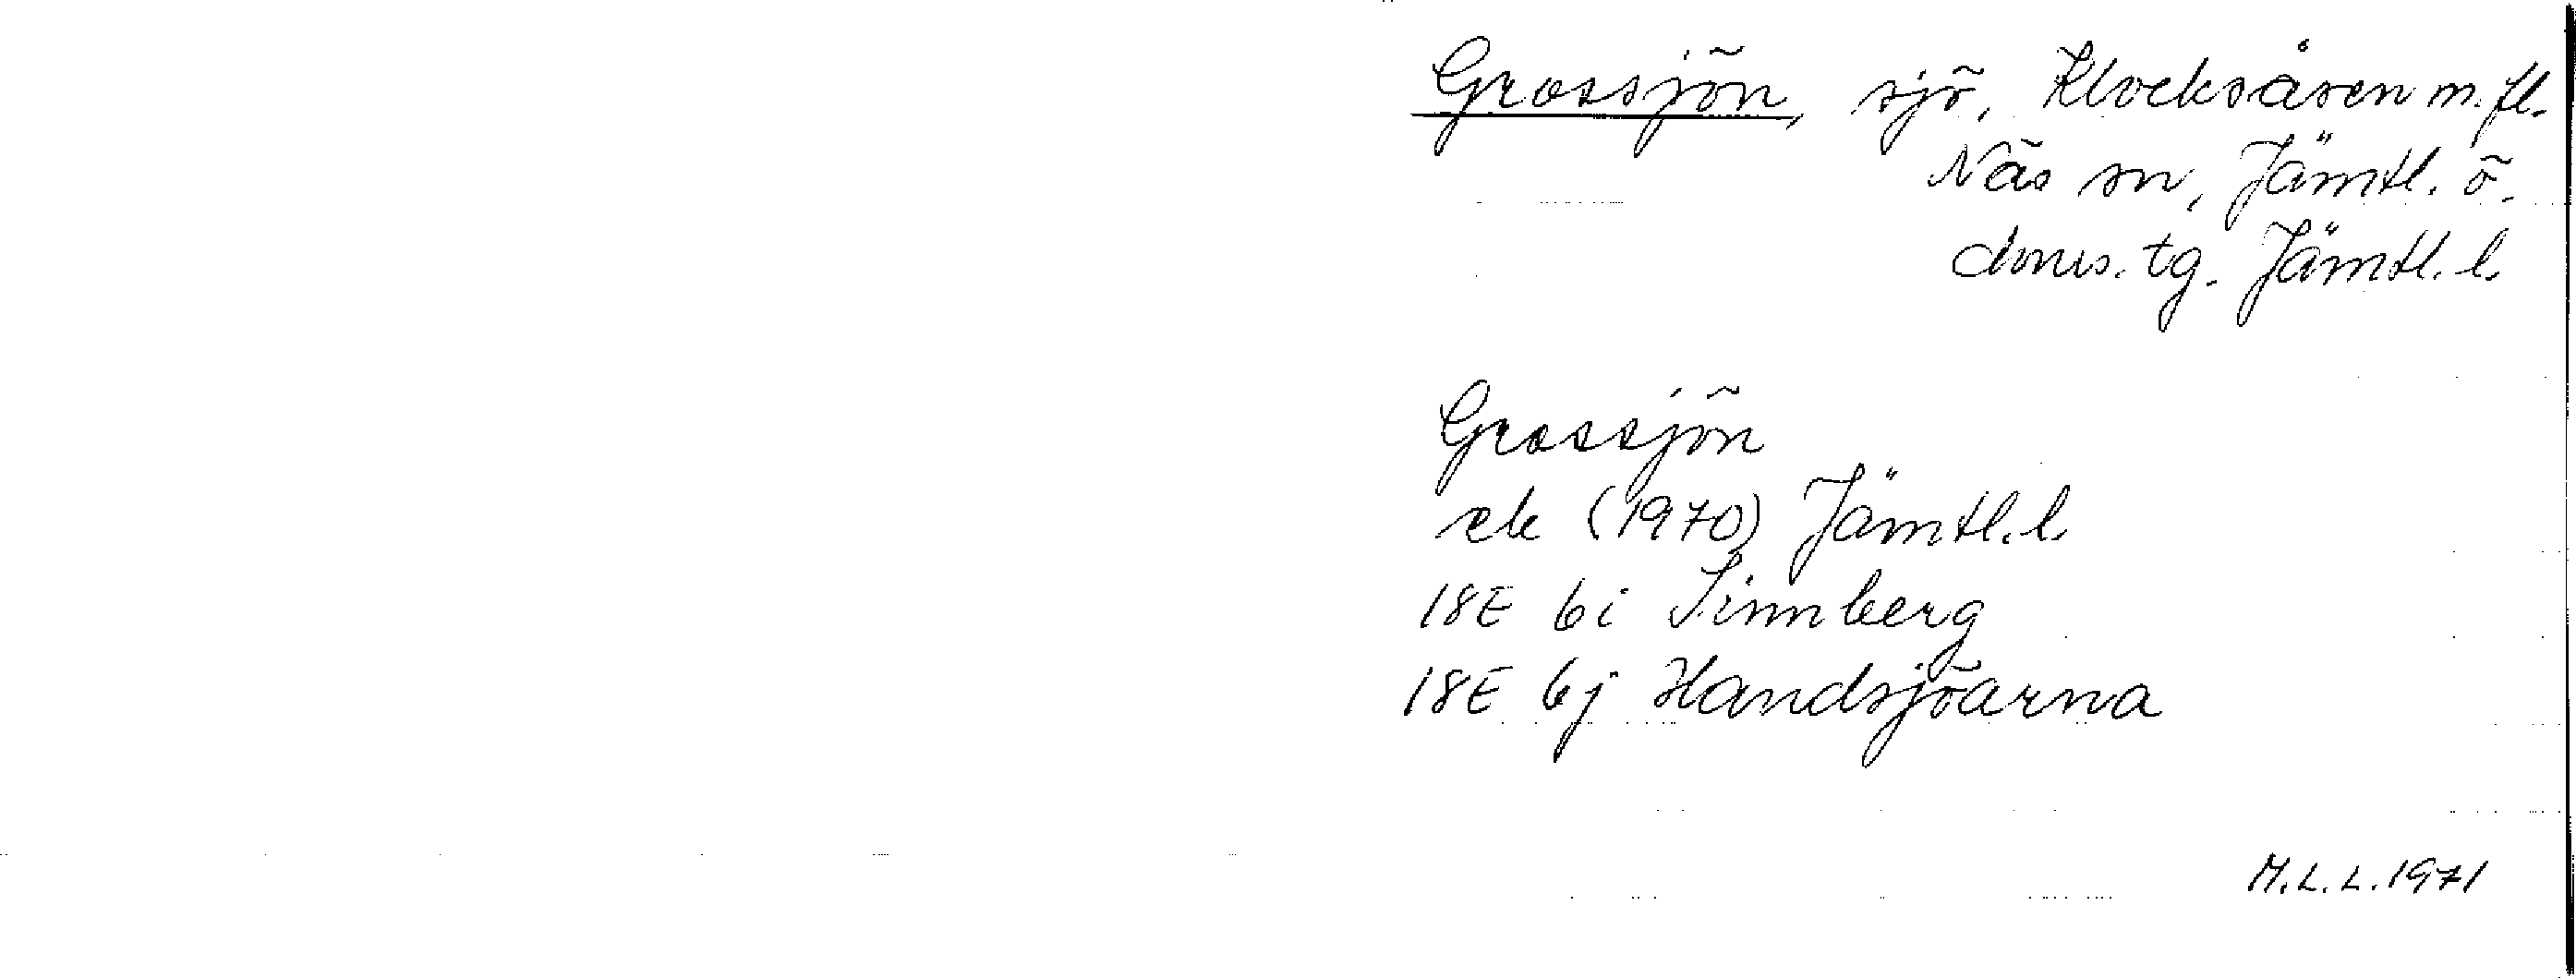 Grossjön, sjö, Klocksåsen m. fl.
Näs sn, Jämtl. ö.
doms. tg. Jämtl. l.
Grossjön
ek (1970) Jämtl. l.
18E 6i Sinnberg
18E 6j Handsjöarna
M.L.L. 1971